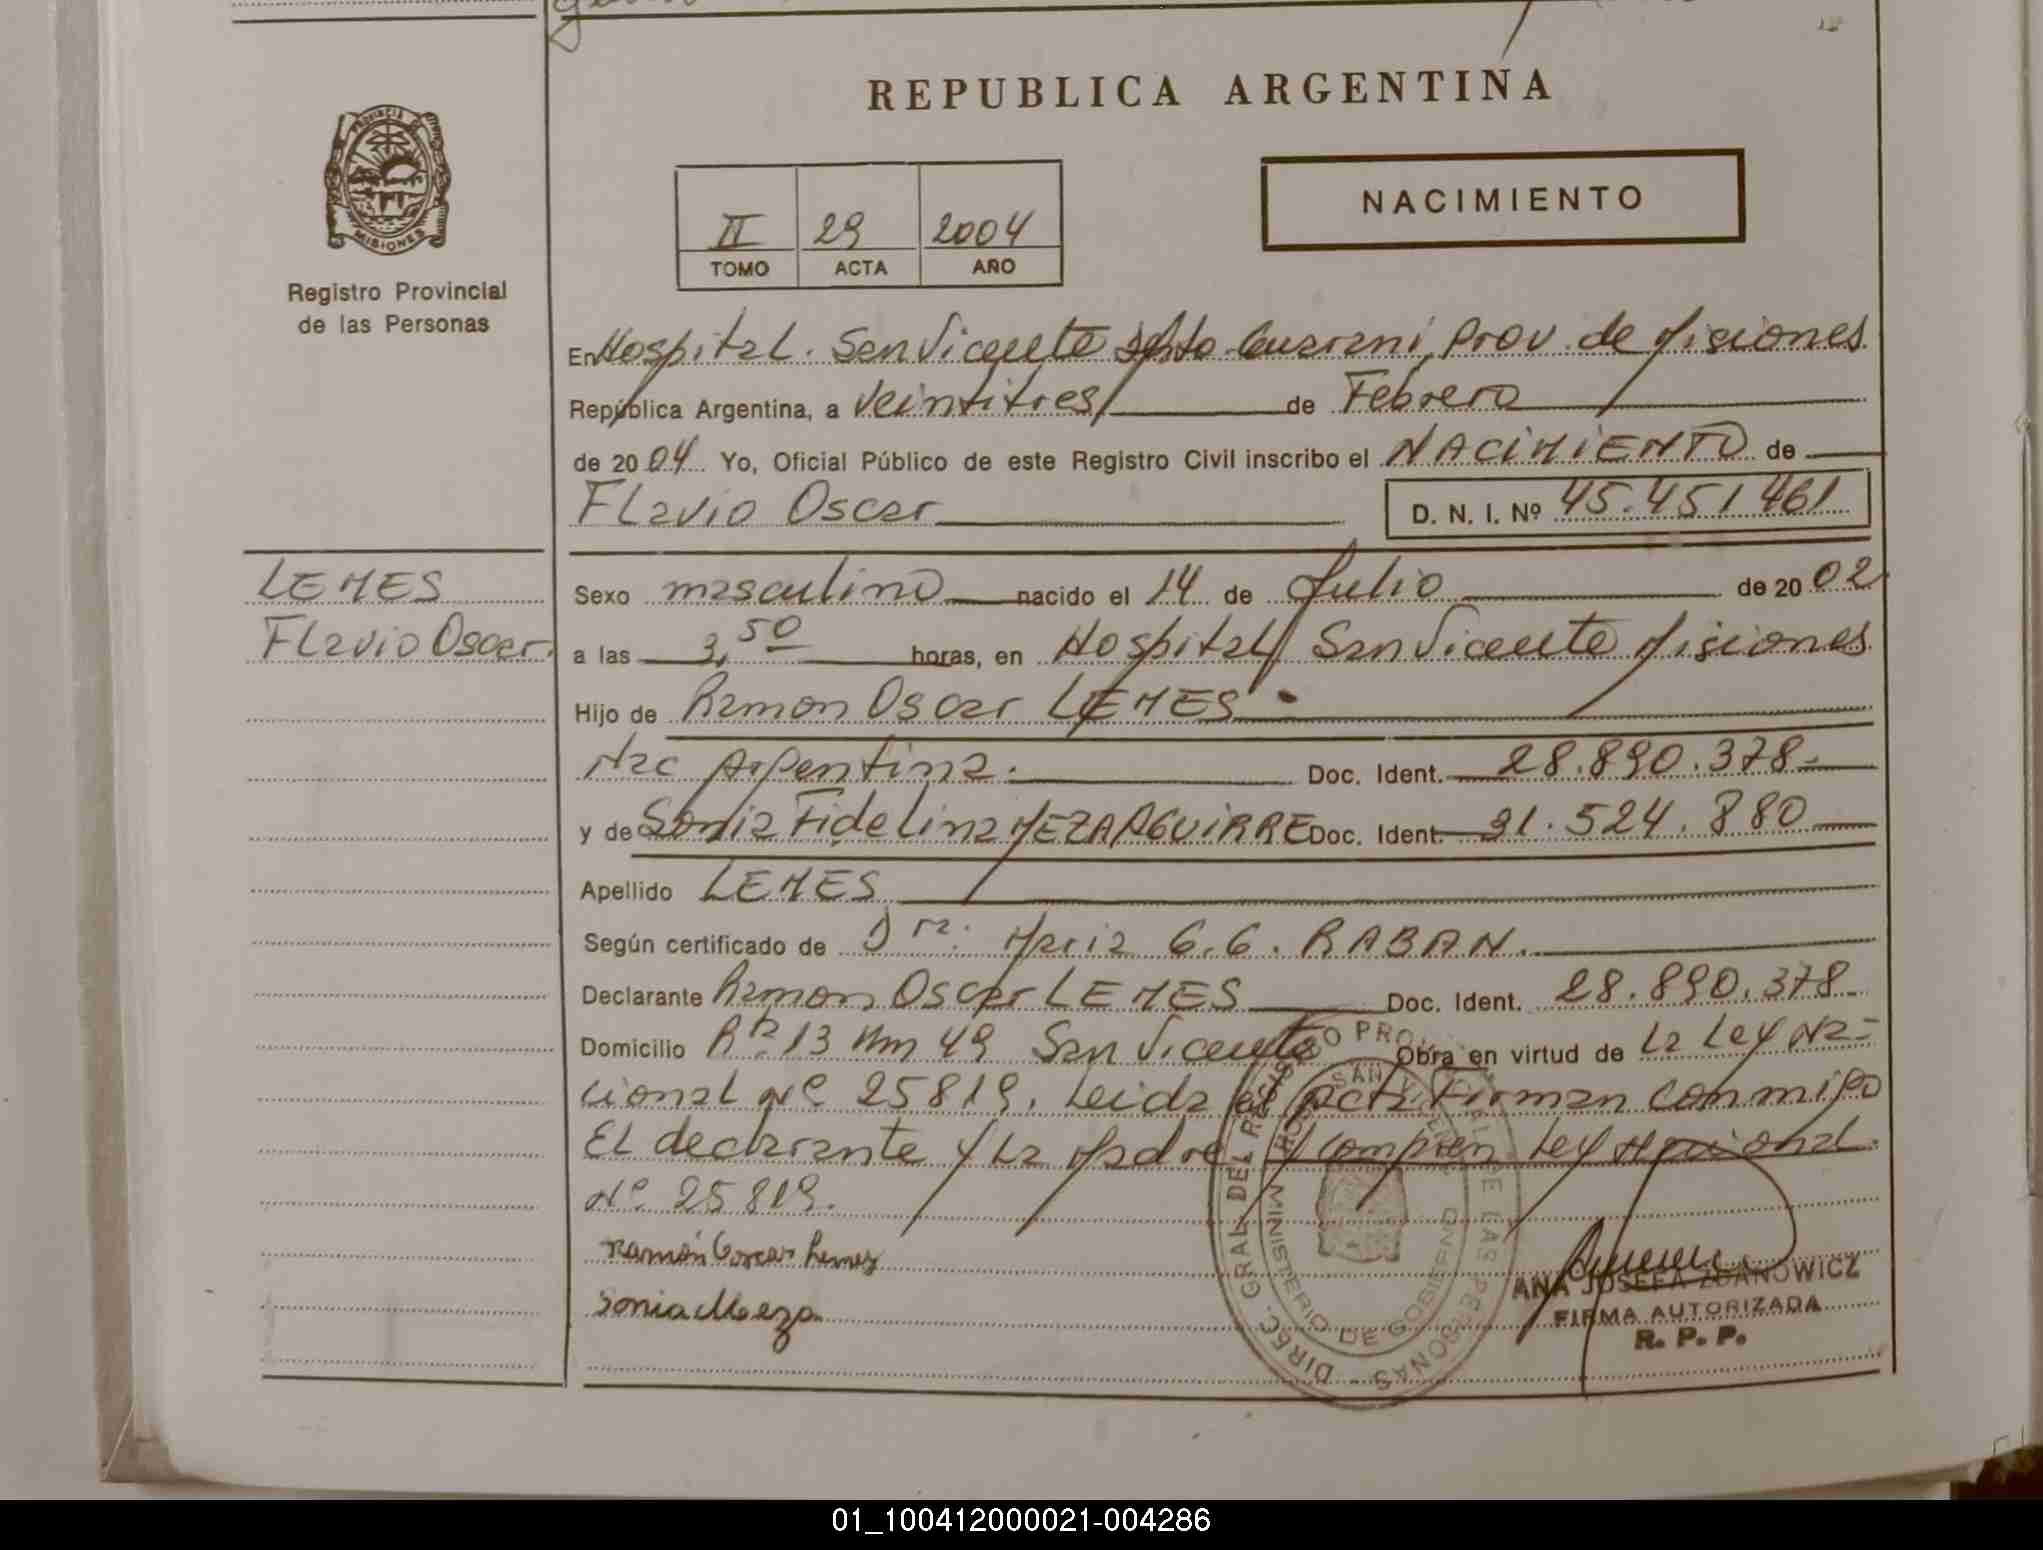 REPUBLICA ARGENTINA
PROVINCIA DE MISIONES
Registro Provincial
de las Personas
II 29 2004
TOMO ACTA AÑO
NACIMIENTO
En Hospital. San Vicente Dpto Guarani, Prov. de Misiones
República Argentina, a veintitres de Febrero
de 2004 Yo, Oficial Público de este Registro Civil inscribo el NACIMIENTO de
Flavio Oscar D. N. I. Nº 45.451461
LEMES
Flavio Oscar.
Sexo masculino nacido el 14 de Julio de 2002
a las 3,50 horas, en Hospital San Vicente Misiones
Hijo de Ramon Oscar LEMES
Nac Argentina. Doc. Ident. 28.890.378-
y de Sonia Fidelina MEZA AGUIRRE Doc. Ident. 31.524.880
Apellido LEMES
Según certificado de Dra. Maria G.G. RABAN.
Declarante Ramon Oscar LEMES Doc. Ident. 28.890.378-
Domicilio Rta 13 Km 49 San Vicente Obra en virtud de La Ley Na-
cional Nº 25819. Leida el acta Firman conmigo
El declarante y La Madre y Ley Nacional.
Nº 25819.
Ramón Oscar Lemes
Sonia Meza
DIREC. GRAL. DEL REGISTRO PROVINCIAL DE LAS PERSONAS
MINISTERIO DE GOBIERNO
ANA JOSEFA ZDANOWICZ
FIRMA AUTORIZADA
R. P. P.
01_100412000021-004286